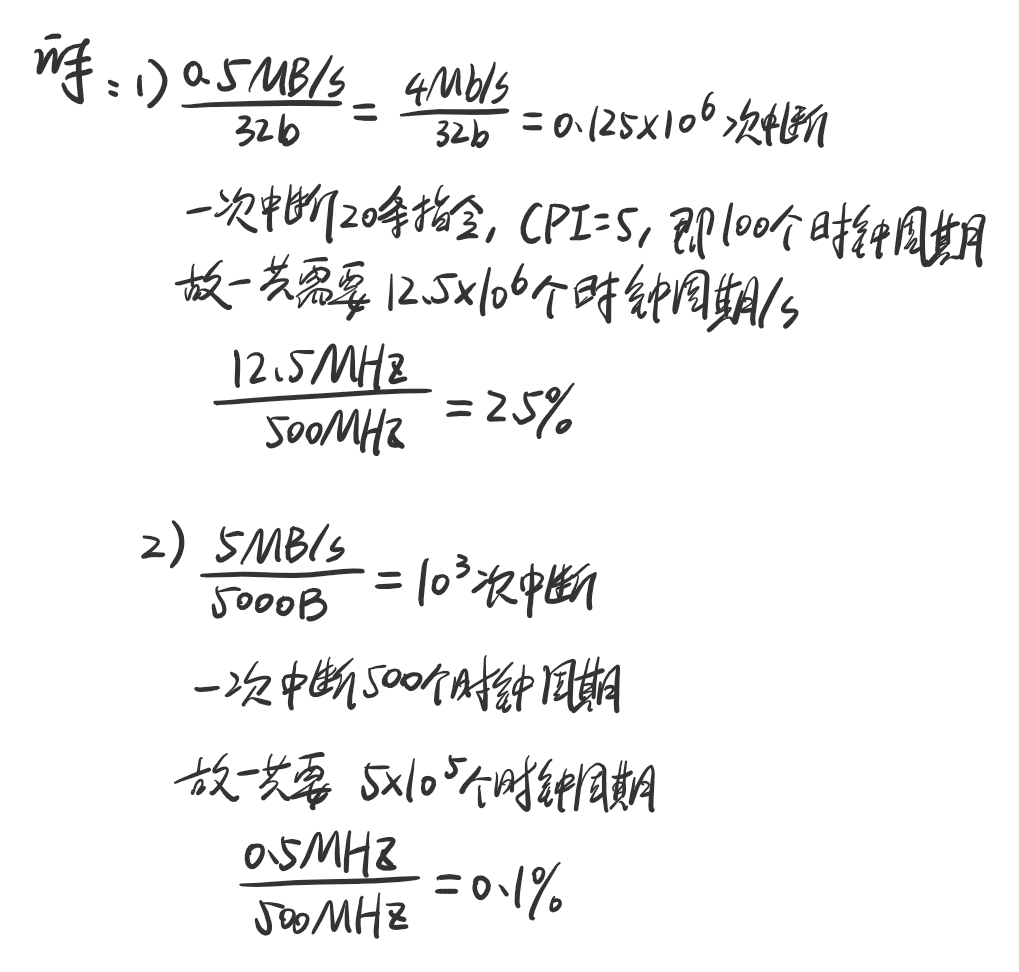 解：1) 0.5MB/s / 32b = 4Mb/s / 32b = 0.125×10⁶次中断
一次中断20条指令, CPI=5, 即100个时钟周期
故一共需要 12.5×10⁶个时钟周期/s
12.5MHz / 500MHz = 2.5%
2) 5MB/s / 5000B = 10³次中断
一次中断500个时钟周期
故一共要 5×10⁵个时钟周期
0.5MHz / 500MHz = 0.1%